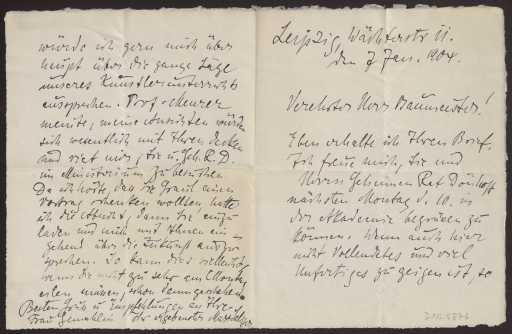 Leipzig, Wächterstr 11.
den 7 Jan. 1904.
Verehrter Herr Baumeister!
Eben erhalte ich Ihren Brief.
Ich freue mich, Sie und
Herrn Geheimen Rat Dönhoff
nächsten Montag d. 10. in
der Akademie begrüßen zu
können. Wenn auch hier
nicht Vollendetes und viel
Unfertiges zu zeigen ist, so
würde ich gern mich über
haupt über die ganze Lage
unseres Kunstlerunterrichts
aussprechen. Prof. Meurer
meinte, meine Ansichten würden
sich wesentlich mit Ihren decken
und riet mir, Sie u. Geh. R. D.
im Ministerium zu besuchen
Da ich hörte, daß Sie uns einen
Vortrag schenken wollten, hatte
ich die Absicht, dann Sie einzu
laden und mich mit Ihnen ein
gehend über die Zukunft auszu
sprechen. So kann dies vielleicht,
wenn Sie nicht zu sehr am Montag
eilen müssen, schon geschehen.
Besten Gruß u. Empfehlungen an Ihre
Frau Gemahlin Ihr ergebenster